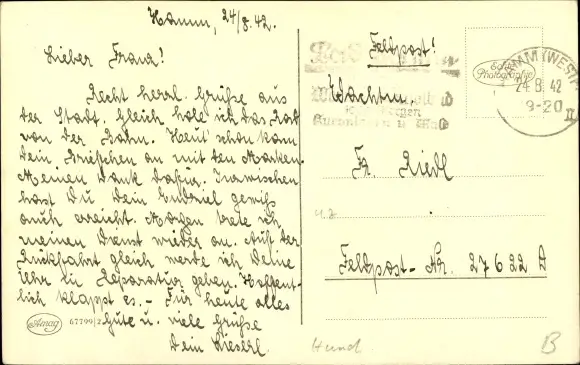 Hamm, 24/8. 42.
Lieber Franz!
Recht herzl. Grüße aus
der Stadt. Gleich hole ich das Rad
von der Bahn. Heut' schon kam
Dein Briefchen an mit den Marken.
Meinen Dank dafür. Inzwischen
hast Du Dein Endziel gewiß
auch erreicht. Morgen trete ich
meinen Dienst wieder an. Auf der
Rückfahrt gleich werde ich Deine
Uhr in Reparatur geben. Hoffent-
lich klappt es. – Für heute alles
Gute u. viele Grüße
Dein Lieserl.
Amag
67799/2
Feldpost!
Wachtm.
Fz Riedl
Feldpost-Nr. 27622 D
Echte
Photographie
HAMM (WESTF)
24.8.42
9-20
Hund
B